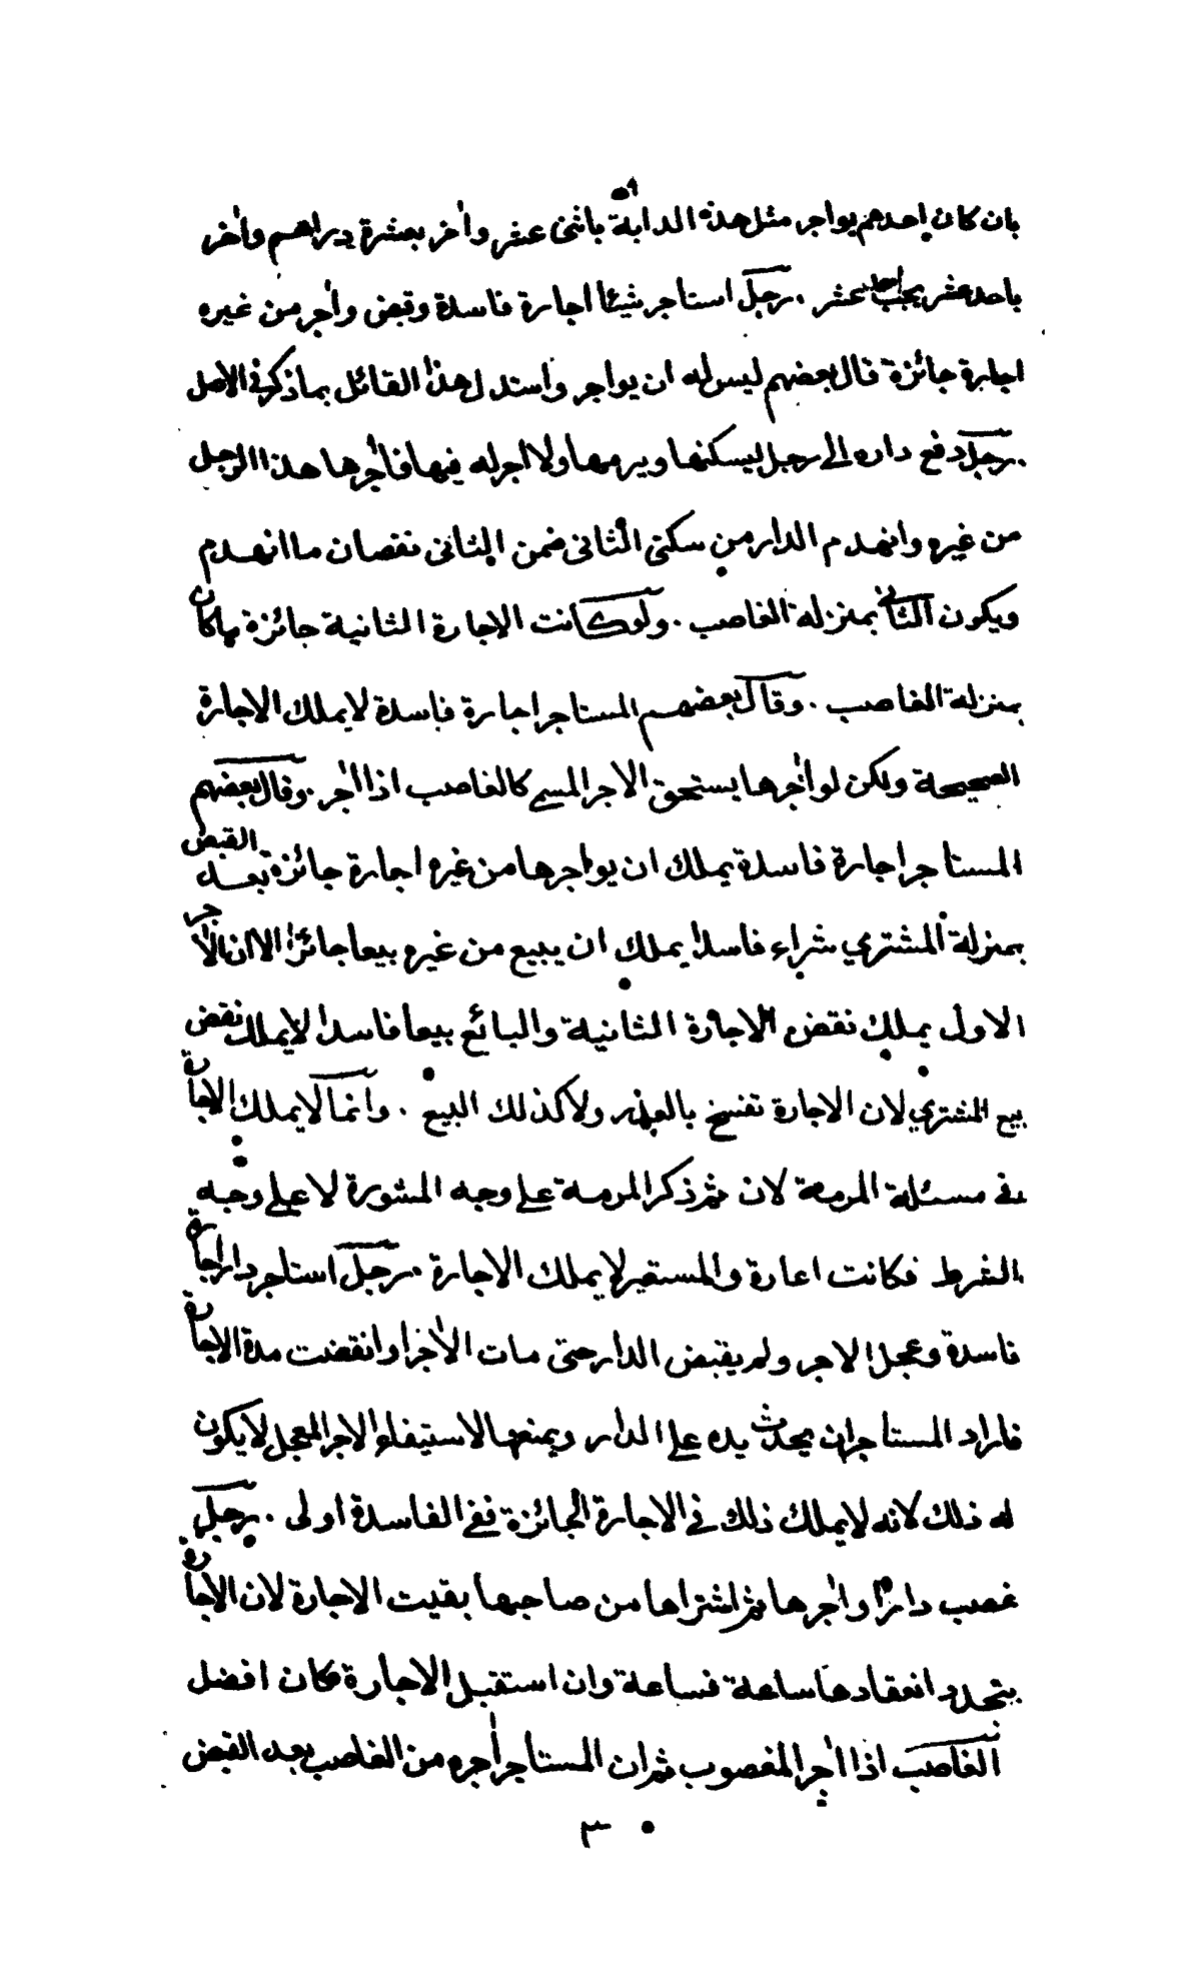 بان كان احدهم يواجر مثل هذه الدابة باثنى عشر واٰخر بعشرة دراهم واٰخر
باحد عشر يجب احد عشر . رجل استاجر شيئا اجارة فاسدة وقبض واٰجر من غيره
اجارة جائزة قال بعضهم ليس له ان يواجر واستدل هذا القائل بما ذكر فى الاصل
رجل دفع داره الى رجل ليسكنها ويرمها ولا اجر له فيها فاٰجرها هذا الرجل
من غيره وانهدم الدار من سكنى الثانى ضمن الثانى نقصان ما انهدم
ويكون الثانى بمنزلة الغاصب . ولو كانت الاجارة الثانية جائزة ما كان
بمنزلة الغاصب . وقال بعضهم المستاجر اجارة فاسدة لا يملك الاجارة
الصحيحة ولكن لو اٰجرها يستحق الاجر المسمى كالغاصب اذا اٰجر . وقال بعضهم
المستاجر اجارة فاسدة يملك ان يواجرها من غيره اجارة جائزة بعد القبض
بمنزلة المشتري شراء فاسدا يملك ان يبيع من غيره بيعا جائزا الا ان الاٰجر
الاول يملك نقض الاجارة الثانية والبائع بيعا فاسدا لا يملك نقض
بيع المشتري لان الاجارة تفسخ بالعذر ولا كذلك البيع . وانما لا يملك الاجارة
فى مسئلة المرمة لان ثم ذكر المرمة على وجه المشورة لا على وجه
الشرط فكانت اعارة والمستعير لا يملك الاجارة . رجل استاجر دارا اجارة
فاسدة وعجل الاجر ولم يقبض الدار حتى مات الاٰجر او انقضت مدة الاجارة
فاراد المستاجر ان يحدث يده على الدار ويمنعها لاستيفاء الاجر المعجل لا يكون
له ذلك لانه لا يملك ذلك فى الاجارة الجائزة ففى الفاسدة اولى . رجل
غصب دارا واٰجرها ثم اشتراها من صاحبها بقيت الاجارة لان الاجارة
يتجدد انعقادها ساعة فساعة وان استقبل الاجارة فكان افضل
الغاصب اذا اٰجر المغصوب ثم ان المستاجر اٰجره من الغاصب بعد القبض
٣